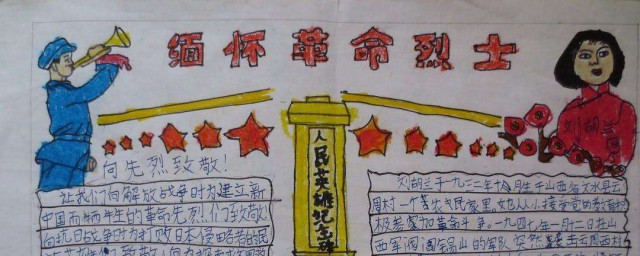 缅怀革命烈士
刘胡兰
人民英雄纪念碑
向先烈致敬!
让我们向解放战争时为建立新
中国而牺牲的革命先烈们致敬
向抗日战争时为打败日本侵略者
刘胡兰于一九三二年十月生于山西省文水县云
周村一个贫农民家里。她从小接受党的教育积
极参加革命斗争。一九四七年一月十二日在山
西军阀阎锡山的军队突然袭击云周西村